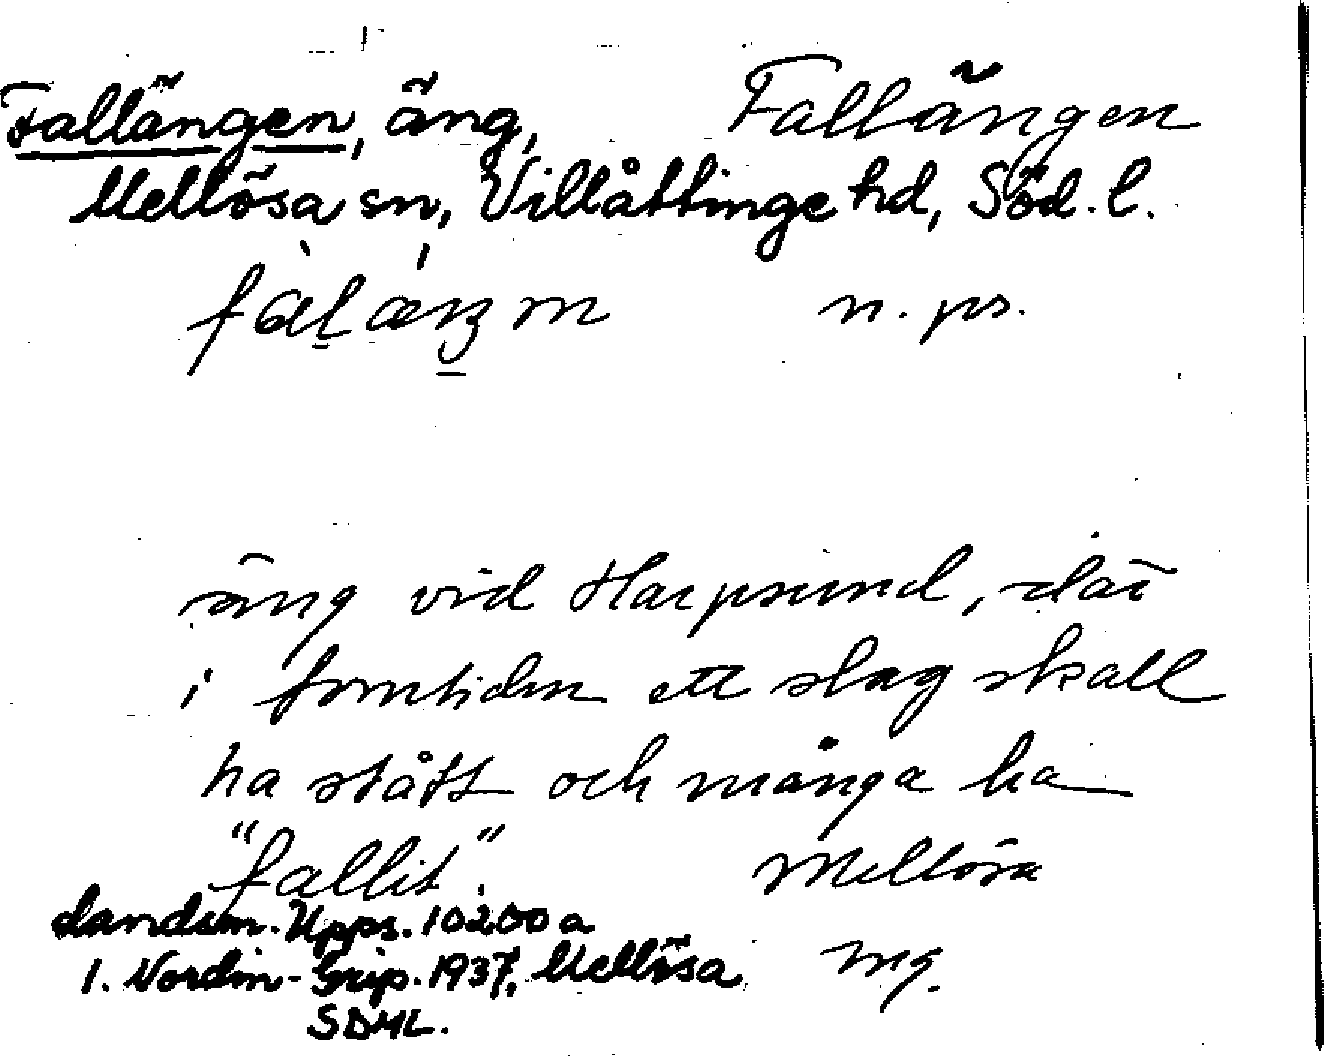 Fallängen, äng, Fallängen
Mellösa sn, Villåttinge hd, Söd. l.
n. ps.
äng vid Harpsund, där
i forntiden ett slag skall
ha stått och många ha
"fallit". Mellösa
Landsm. Upps. 10200a
I. Nordin-Grip. 1937, Mellösa
SDML.